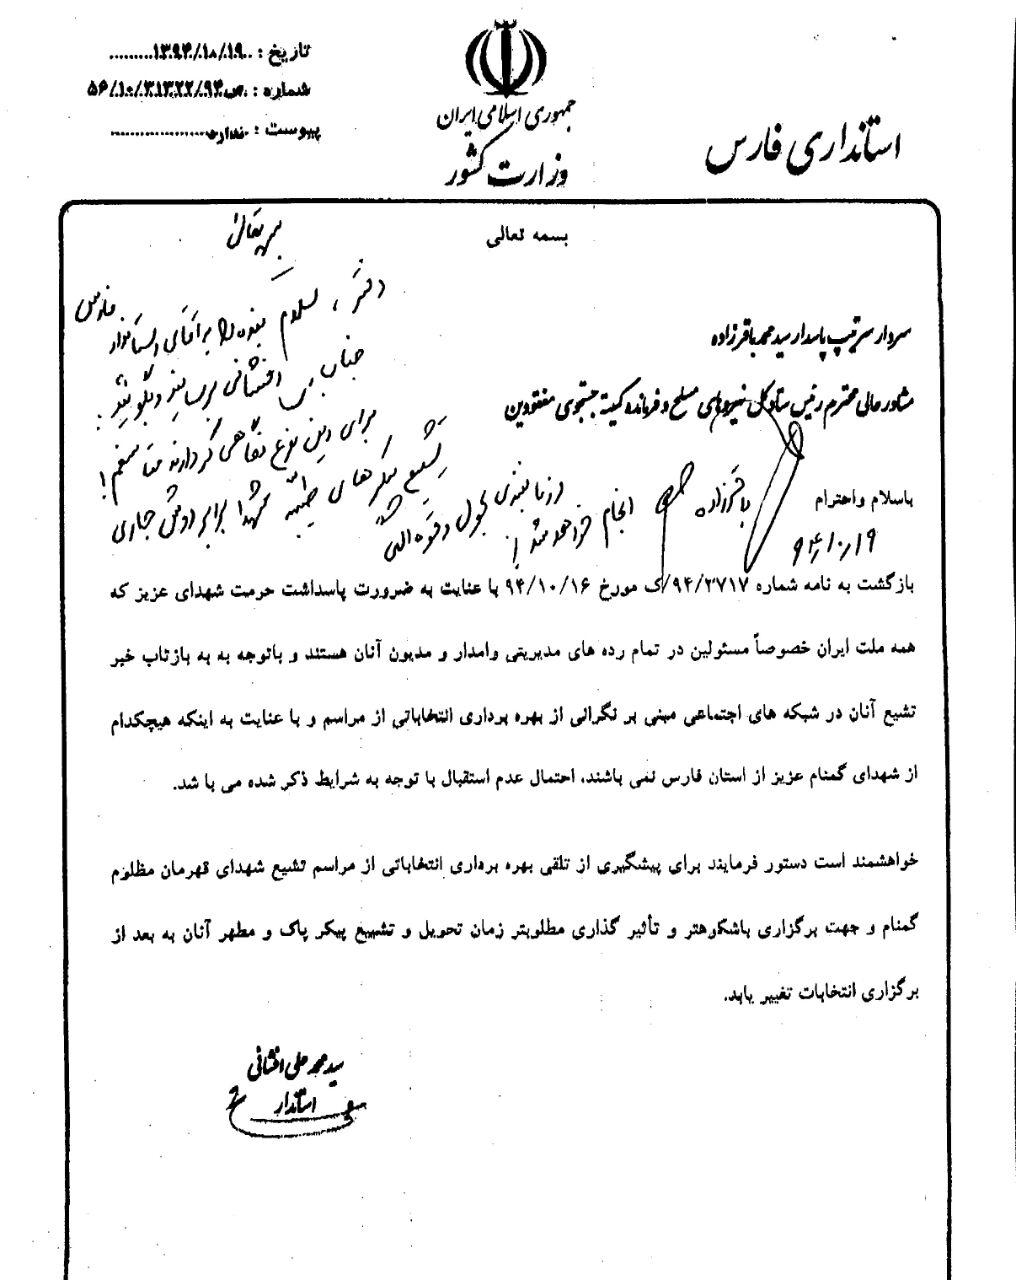 استانداری فارس
جمهوری اسلامی ایران
وزارت کشور
تاریخ : ۱۳۹۴/۱۰/۱۹
شماره : ص۵۶/۱۰/۳۱۳۲۲/۹۴
پیوست : ندارد
بسمه تعالی
سردار سرتیپ پاسدار سید محمد باقرزاده
مشاور عالی محترم رئیس ستاد کل نیروهای مسلح و فرمانده کمیته جستجوی مفقودین
باسلام و احترام
بازگشت به نامه شماره ۹۴/۲۷۱۷/ک مورخ ۹۴/۱۰/۱۶ با عنایت به ضرورت پاسداشت حرمت شهدای عزیز که
همه ملت ایران خصوصاً مسئولین در تمام رده های مدیریتی وامدار و مدیون آنان هستند و باتوجه به به بازتاب خبر
تشیع آنان در شبکه های اجتماعی مبنی بر نگرانی از بهره برداری انتخاباتی از مراسم و با عنایت به اینکه هیچکدام
از شهدای گمنام عزیز از استان فارس نمی باشند، احتمال عدم استقبال با توجه به شرایط ذکر شده می با شد.
خواهشمند است دستور فرمایند برای پیشگیری از تلقی بهره برداری انتخاباتی از مراسم تشیع شهدای قهرمان مظلوم
گمنام و جهت برگزاری باشکوهتر و تأثیر گذاری مطلوبتر زمان تحویل و تشییع پیکر پاک و مطهر آنان به بعد از
برگزاری انتخابات تغییر یابد.
سید محمد علی افشانی
استاندار
دفتر ، سلام بنده را به آقای استاندار فارس
جناب افشانی برسانید و بگوئید :
برای این نوع نگاهی که دارند متأسفم !
تشییع پیکرهای طیبه شهدا برابر روش جاری
و زمانبندی بحول و قوه الهی
انجام خواهد شد !
باقرزاده
۹۴/۱۰/۱۹